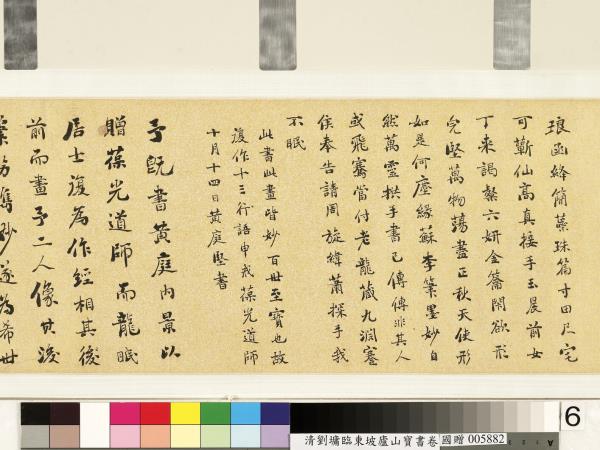 琅函絳簡蘂珠篇寸田尺宅
可蘄仙高真接手玉晨前女
丁來謁粲六妍金籥閉欲形
完堅萬物蕩盡正秋天使形
如是何塵緣蘇李筆墨妙自
然萬靈拱手書已傳傳非其人
或飛騫當付老龍藏九淵蹇
侯奉告請周旋緯蕭探手我
不眠
此書此畫皆妙百世至寶也故
復作十三行語申戒葆光道師
十月十四日黃庭堅書
予既書黃庭內景以
贈葆光道師而龍眠
居士復為作經相其後
前而畫予二人像其後
筆勢雋妙遂為希世
6
清劉墉臨東坡廬山寶書卷
國贈 005882